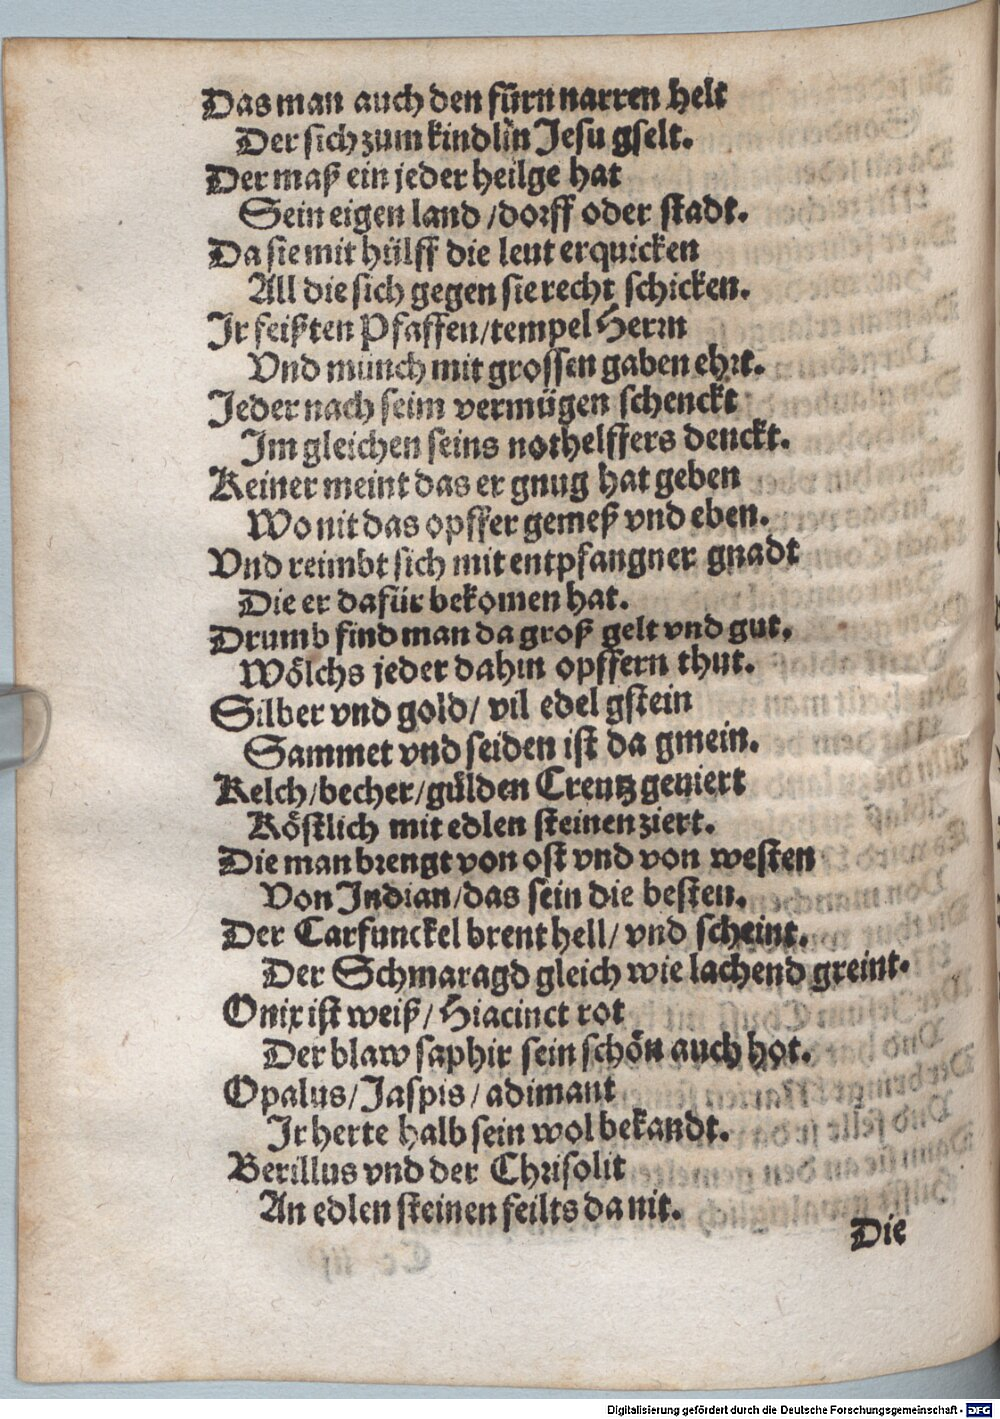 Das man auch den fürn narren helt
Der sich zum kindlin Jesu gselt.
Der maß ein jeder heilge hat
Sein eigen land / dorff oder stadt.
Da sie mit hülff die leut erquicken
All die sich gegen sie recht schicken.
Ir feißten Pfaffen / tempel Herrn
Vnd münch mit grossen gaben ehrt.
Jeder nach seim vermügen schenckt
Im gleichen seins nothelffers denckt.
Keiner meint das er gnug hat geben
Wo nit das opffer gemeß vnd eben.
Vnd reimbt sich mit entpfangner gnadt
Die er dafür bekomen hat.
Drumb find man da groß gelt vnd gut,
Wölchs jeder dahin opffern thut.
Silber vnd gold / vil edel gstein
Sammet vnd seiden ist da gmein.
Kelch / becher / gülden Creutz geniert
Köstlich mit edlen steinen ziert.
Die man brengt von ost vnd von westen
Von Indian / das sein die besten.
Der Carfunckel brent hell / vnd scheint.
Der Schmaragd gleich wie lachend greint.
Onix ist weiß / Hiacinct rot
Der blaw saphir sein schön auch hot.
Opalus / Jaspis / adimant
Ir herte halb sein wol bekandt.
Berillus vnd der Chrisolit
An edlen steinen feilts da nit.
Die
Digitalisierung gefördert durch die Deutsche Forschungsgemeinschaft - DFG